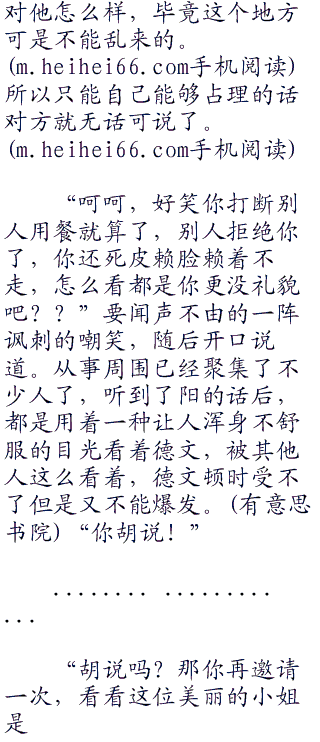 对他怎么样，毕竟这个地方
可是不能乱来的。
(m.heihei66.com手机阅读)
所以只能自己能够占理的话
对方就无话可说了。
(m.heihei66.com手机阅读)
“呵呵，好笑你打断别
人用餐就算了，别人拒绝你
了，你还死皮赖脸赖着不
走，怎么看都是你更没礼貌
吧？？”要闻声不由的一阵
讽刺的嘲笑，随后开口说
道。从事周围已经聚集了不
少人了，听到了阳的话后，
都是用着一种让人浑身不舒
服的目光看着德文，被其他
人这么看着，德文顿时受不
了但是又不能爆发。(有意思
书院)“你胡说！”
........ .........
...
“胡说吗？那你再邀请
一次，看看这位美丽的小姐
是